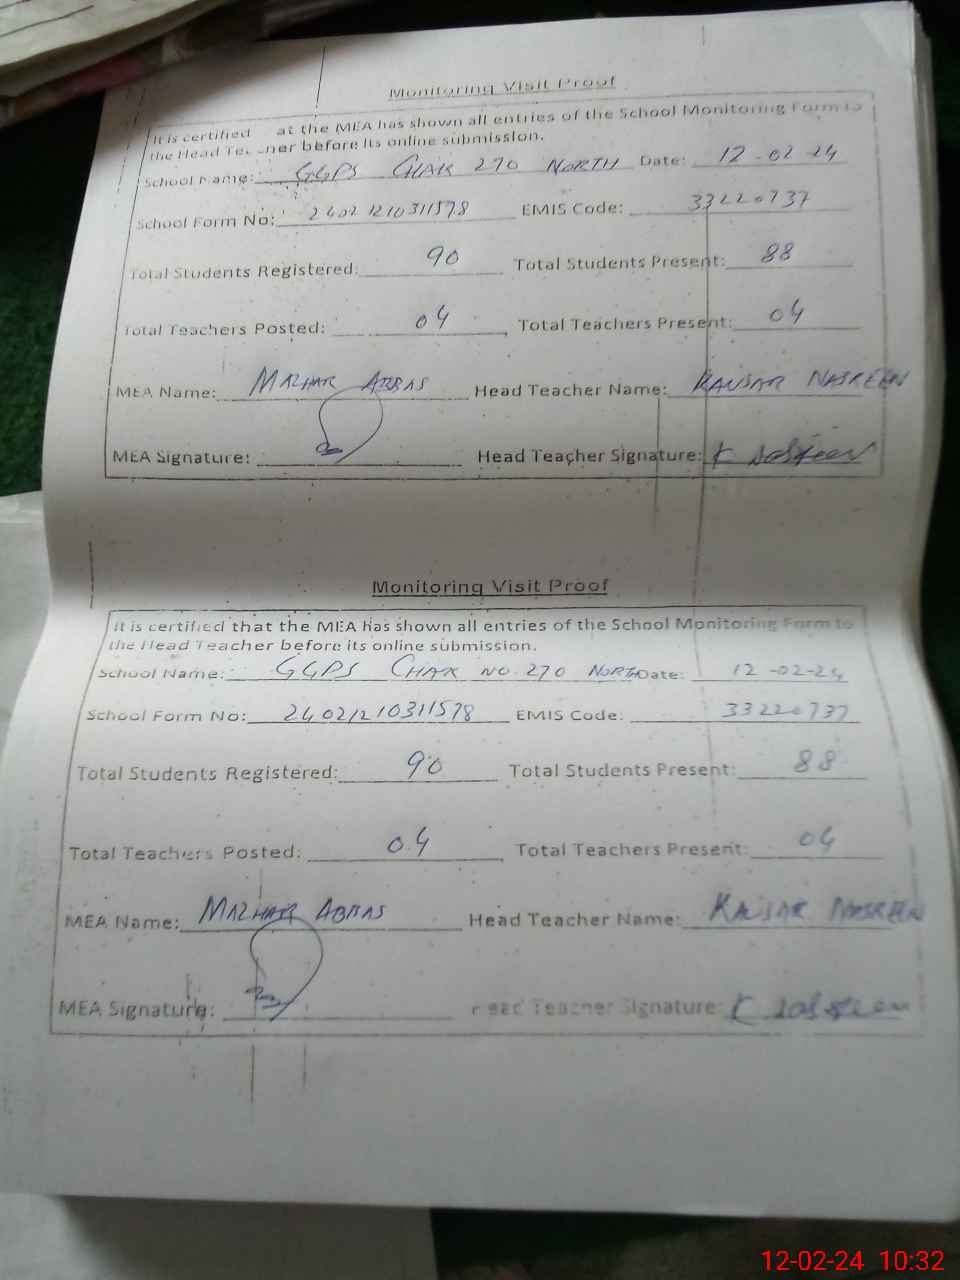 Monitoring Visit Proof
It is certified at the MEA has shown all entries of the School Monitoring Form to
the Head Te ner before its online submission.
School Name: GGPS CHAK 270 NORTH Date: 12-02-24
School Form No: 24021210311578 EMIS Code: 33220737
Total Students Registered: 90 Total Students Present: 88
Total Teachers Posted: 04 Total Teachers Present: 04
MEA Name: MAZHAR ABBAS Head Teacher Name: KAUSAR NASREEN
MEA Signature: Head Teacher Signature: K Nasreen
Monitoring Visit Proof
It is certified that the MEA has shown all entries of the School Monitoring Form to
the Head Teacher before its online submission.
School Name: GGPS CHAK NO. 270 NORTH Date: 12-02-24
School Form No: 24021210311578 EMIS Code: 33220737
Total Students Registered: 90 Total Students Present: 88
Total Teachers Posted: 04 Total Teachers Present: 04
MEA Name: MAZHAR ABBAS Head Teacher Name: KAUSAR NASREEN
MEA Signature: Head Teacher Signature: K Nasreen
12-02-24 10:32